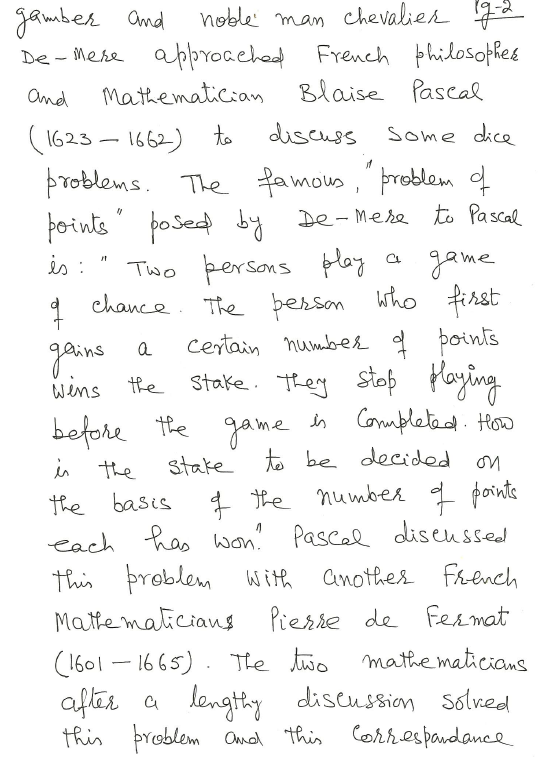 gamber and noble man chevalier pg-2
De-Mere approached French philosopher
and Mathematician Blaise Pascal
(1623 – 1662) to discuss some dice
problems. The famous, "problem of
points" posed by De-Mere to Pascal
is : " Two persons play a game
of chance. The person who first
gains a certain number of points
wins the stake. They stop playing
before the game is Completed. How
is the stake to be decided on
the basis of the number of points
each has won". Pascal discussed
this problem with another French
Mathematicians Pierre de Fermat
(1601 – 1665). The two mathematicians
after a lengthy discussion solved
this problem and this Correspandance